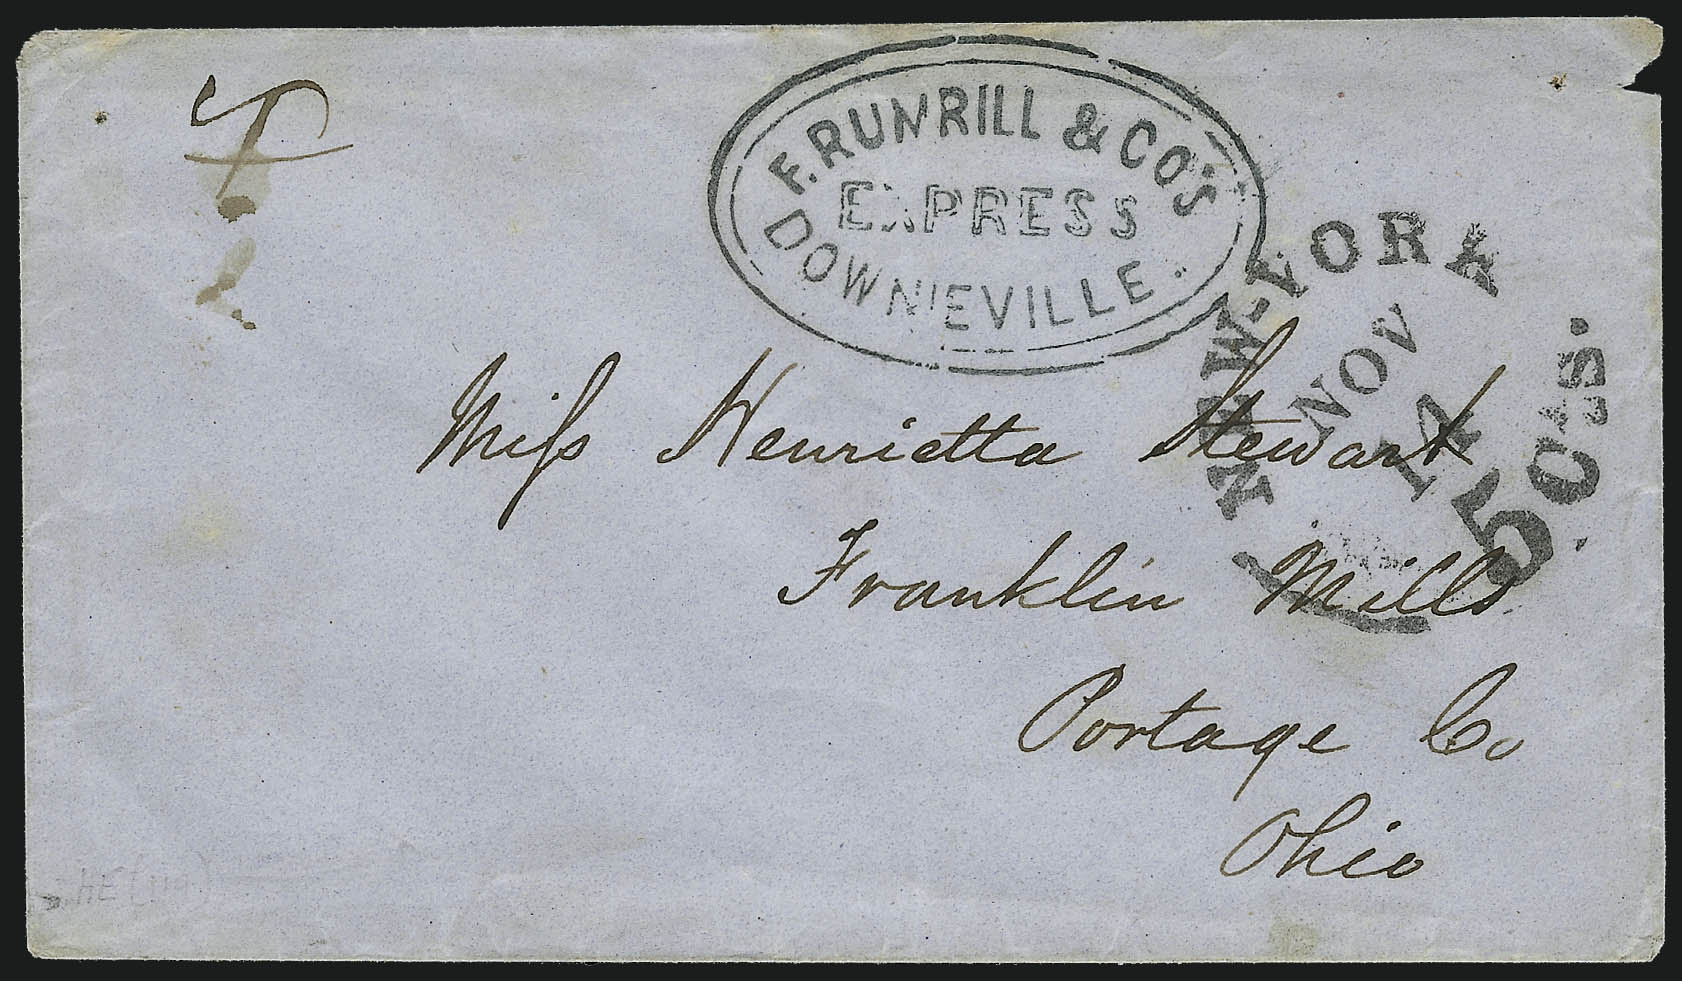 F. RUMRILL & CO'S
EXPRESS
DOWNIEVILLE.
NEW-YORK
NOV
14
5 Cts.
Miss Henrietta Stewart
Franklin Mills
Portage Co
Ohio